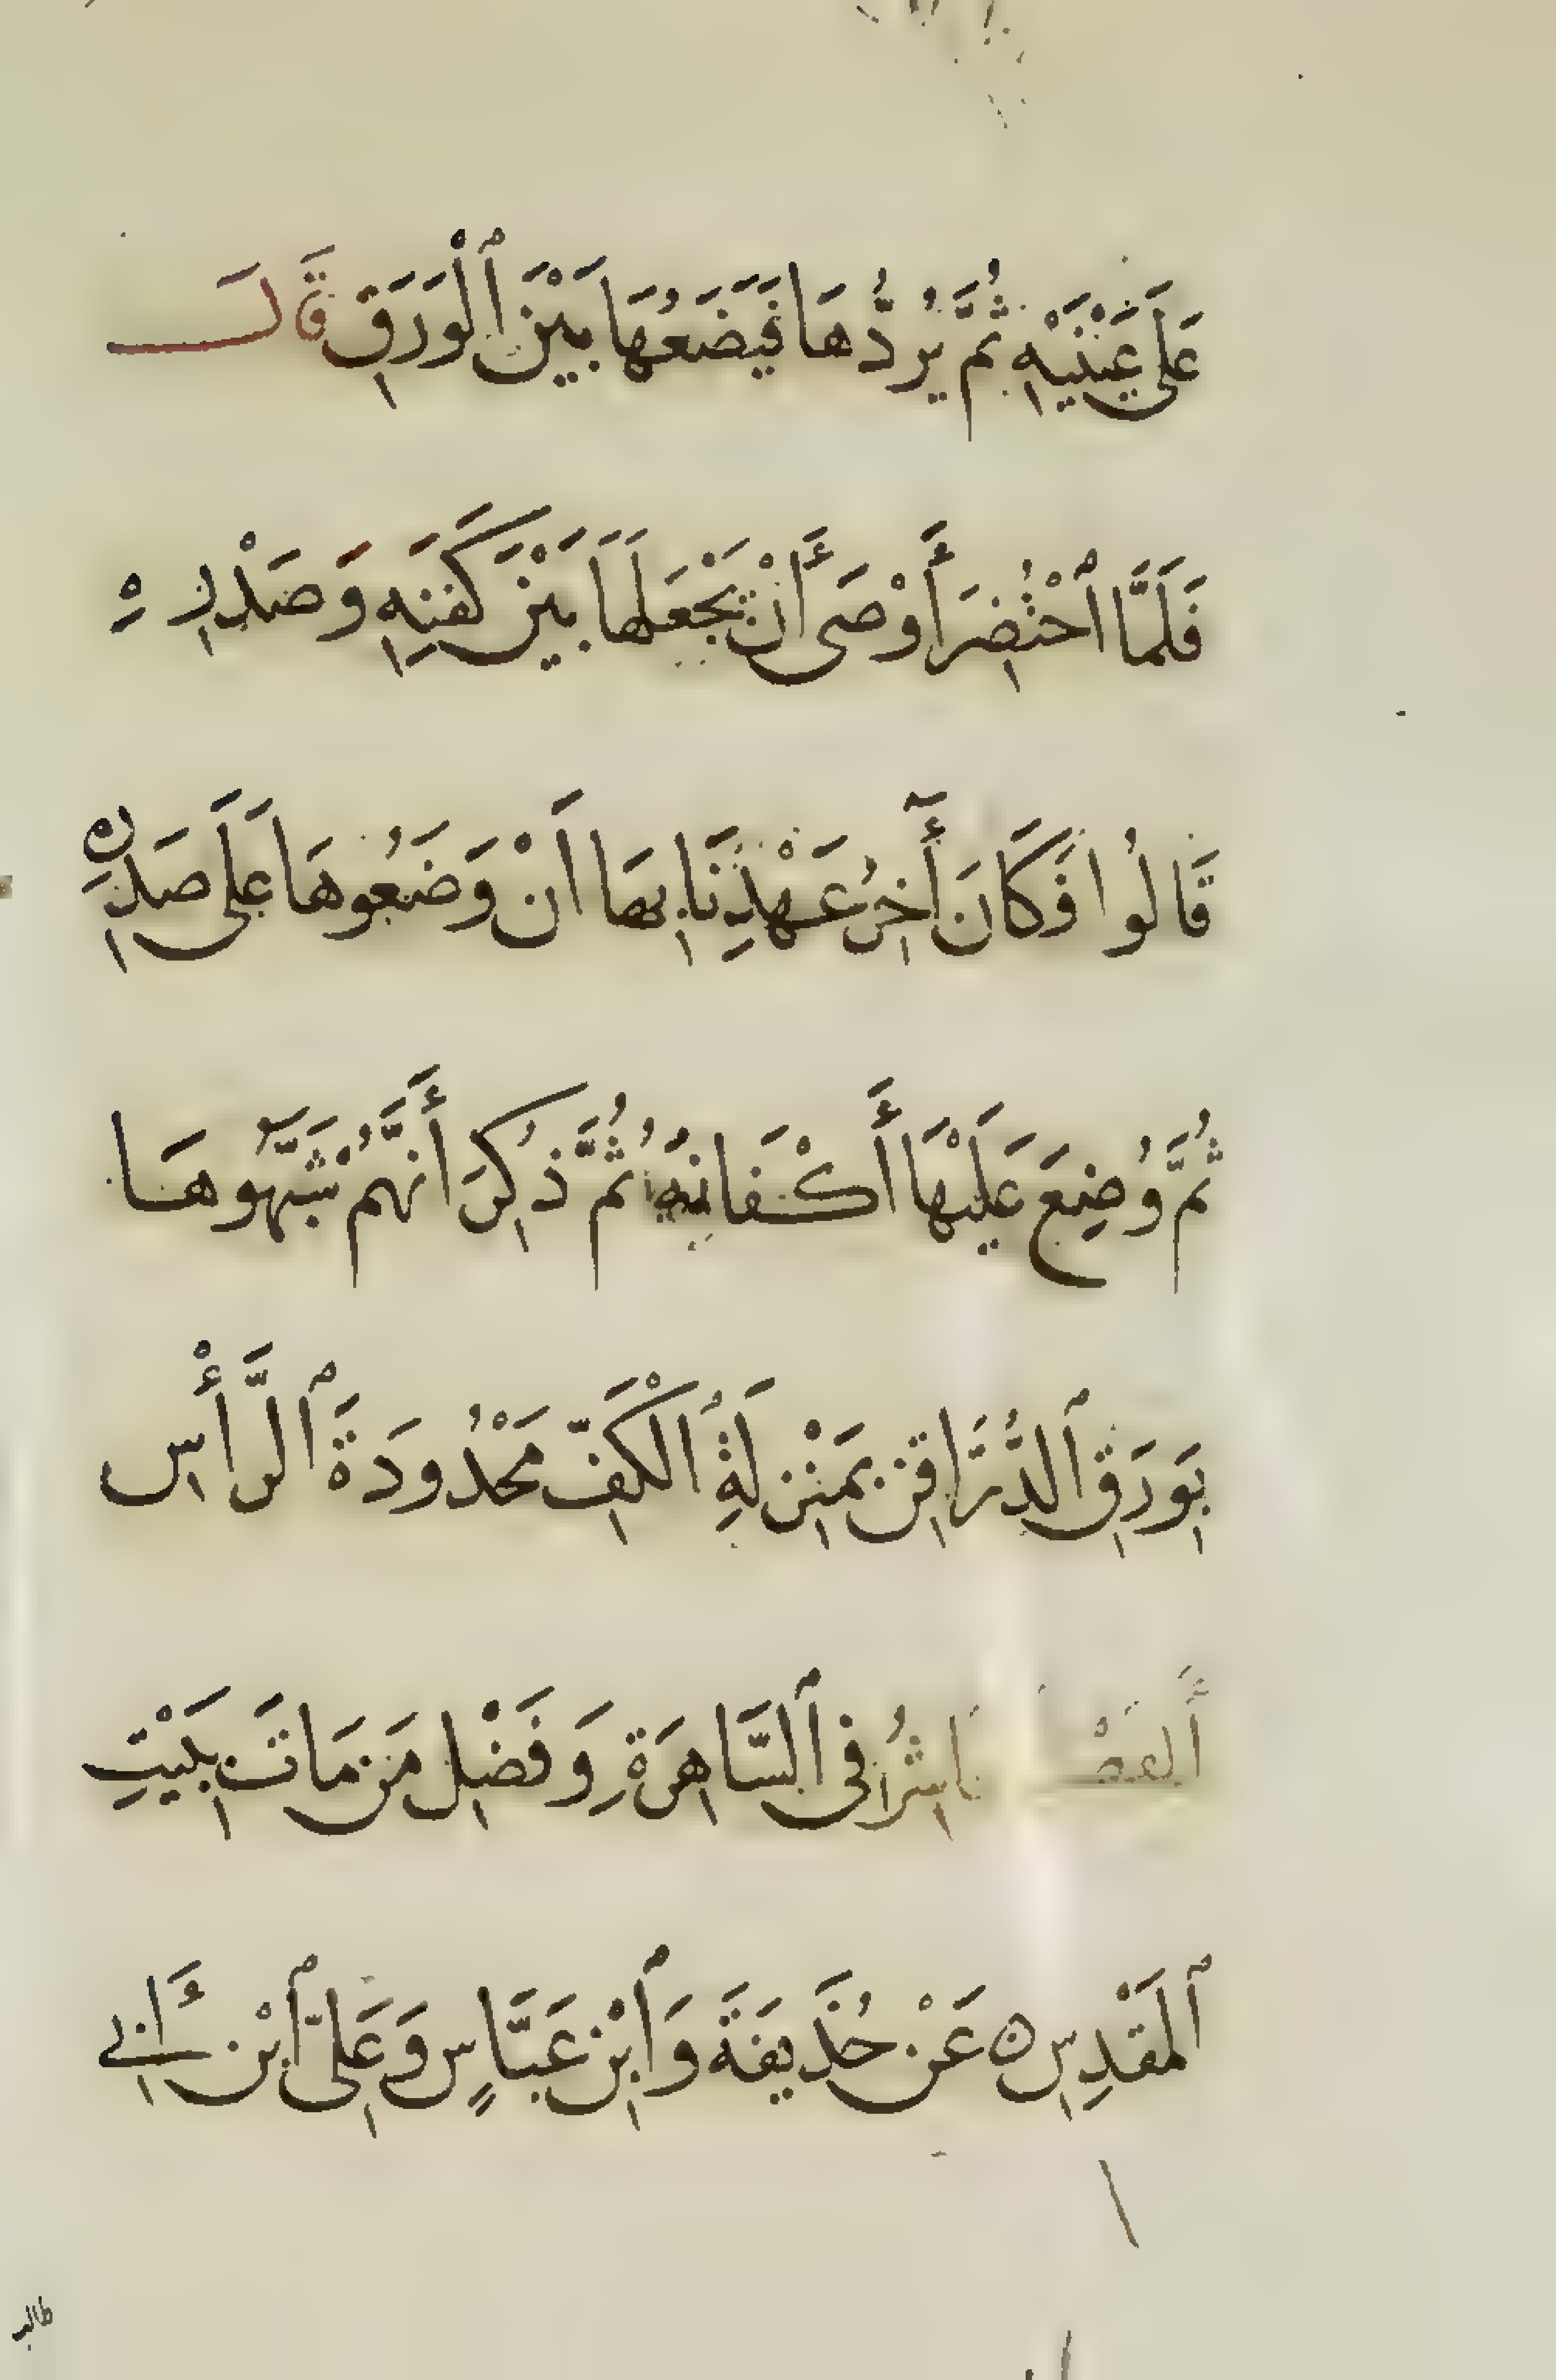 عَلَى عَيْنَيْهِ ثُمَّ يَرُدُّهَا فَيَضَعُهَا بَيْنَ ٱلْوَرَقِ قَالَ
فَلَمَّا ٱحْتُضِرَ أَوْصَى أَنْ تَجْعَلَهَا بَيْنَ كَفَنِهِ وَصَدْرِهِ
قَالُوا فَكَانَ أٓخِرُ عَهْدِنَا بِهَا اَنْ وَضَعُوهَا عَلَى صَدْرِهِ
ثُمَّ وُضِعَ عَلَيْهَا أَكْفَانُهُ ثُمَّ ذُكِرَ أَنَّهُمْ شَبَّهُوهَا
بِوَرَقِ ٱلدُّرَّاقِنِ بِمَنْزِلَةِ ٱلْكَفِّ مَحْدُودَةَ ٱلرَّأْسِ
فِى ٱلسَّاهِرَةِ وَفَضْلِ مَنْ مَاتَ بِبَيْتِ
ٱلْمَقْدِسِ عَنْ حُذَيفَةَ وَٱبْنِ عَبَّاسٍ وَعَلِىِّ ٱبْنِ أَبِى
طالب